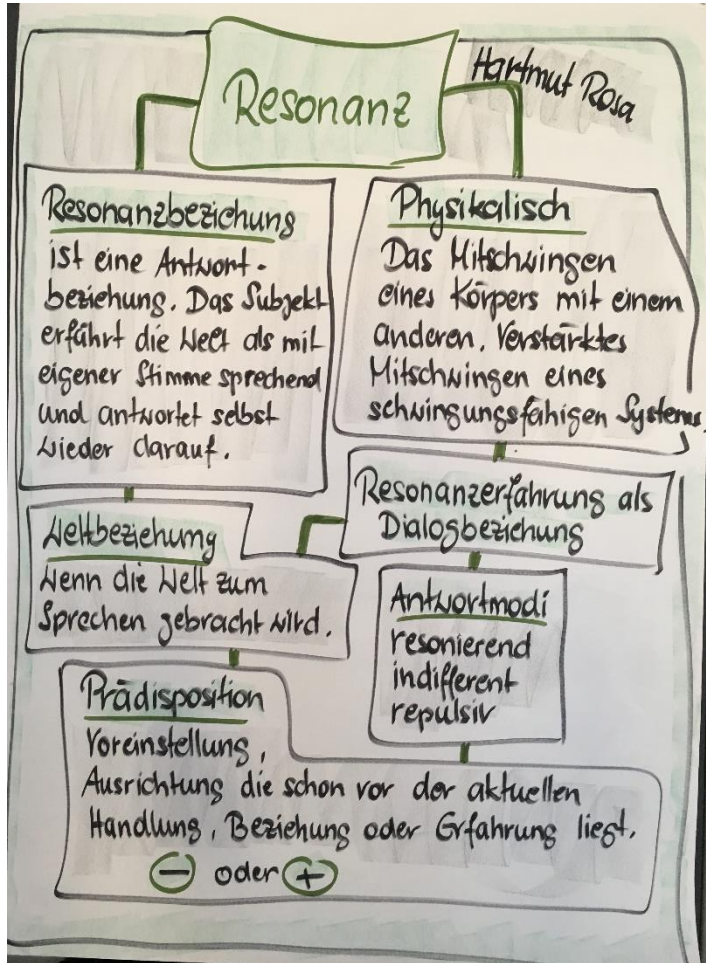 Resonanz
Hartmut Rosa
Resonanzbeziehung
ist eine Antwort-
beziehung. Das Subjekt
erfährt die Welt als mit
eigener Stimme sprechend
und antwortet selbst
wieder darauf.
Physikalisch
Das Mitschwingen
eines Körpers mit einem
anderen. Verstärktes
Mitschwingen eines
schwingungsfähigen Systems.
Resonanzerfahrung als
Dialogbeziehung
Weltbeziehung
Wenn die Welt zum
Sprechen gebracht wird.
Antwortmodi
resonierend
indifferent
repulsiv
Prädisposition
Voreinstellung,
Ausrichtung die schon vor der aktuellen
Handlung, Beziehung oder Erfahrung liegt.
- oder +